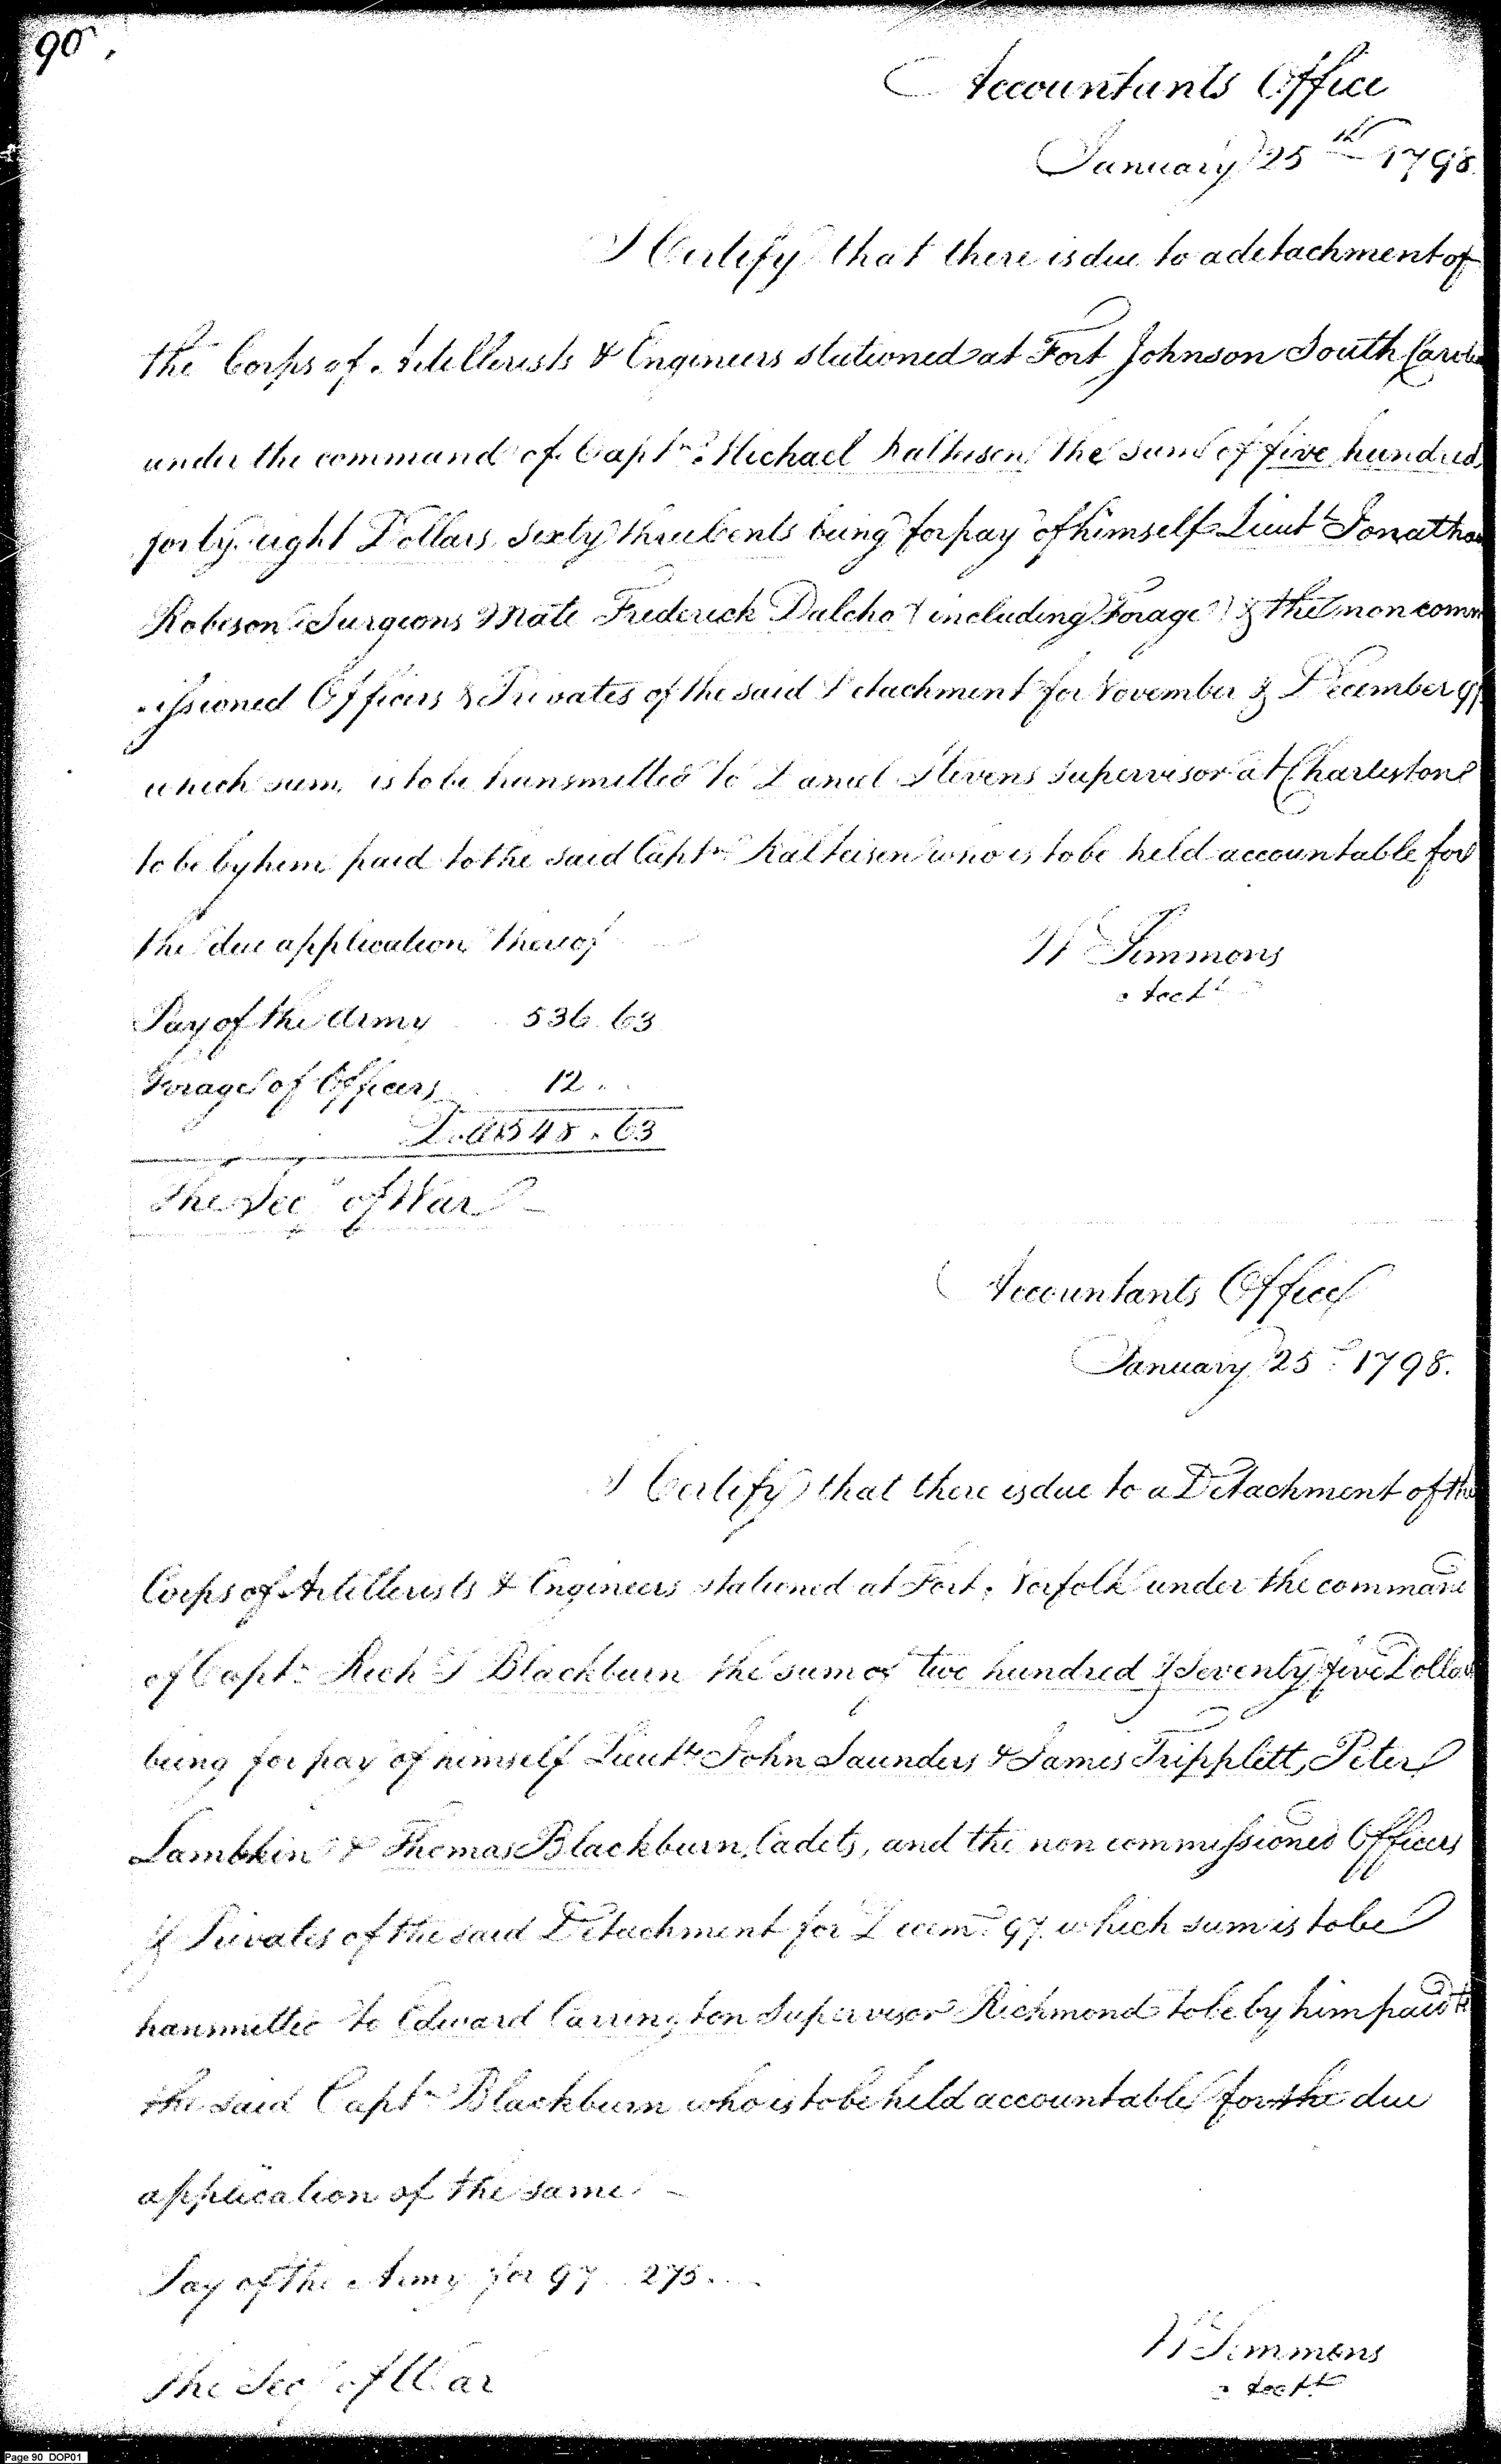 90.
Accountants Office
January 25th 1798.
I Certify that there is due to a detachment of
the Corps of Artillerists & Engineers stationed at Fort Johnson South Caroli
under the command of Captn. Michael Kalteisen the sum of five hundred
forty eight Dollars, Sixty three Cents being for pay of himself Lieut Jonathan
Robeson Surgeons Mate Frederick Dalcho (including Forage) & the non comm
issioned Officers & Privates of the said Detachment for November & December 97
which sum, is to be transmitted to Daniel Stevens Supervisor at Charleston
to be by him paid to the said Captn Kalteisen who is to be held accountable for
the due application thereof
W Simmons
Acct
Pay of the Army 536.63
Forage of Officers 12..
Dolls 548.63
The Secy of War
Accountants Office
January 25th 1798.
I Certify that there is due to a Detachment of the
Corps of Artillerists & Engineers stationed at Fort Norfolk under the command
of Captn Rich S Blackburn the sum of two hundred & Seventy five Dollars
being for pay of himself Lieuts John Saunders & James Tripplett, Peter
Lambkin & Thomas Blackburn, Cadets, and the non commissioned Officers
& Privates of the said Detachment for Decemr 97 which sum is to be
transmitted to Edward Carrington Supervisor Richmond to be by him paid to
the said Captn Blackburn who is to be held accountable for the due
application of the same
Pay of the Army for 97 .. 275...
W Simmons
Acctt
The Secy of War
Page 90 DOP01